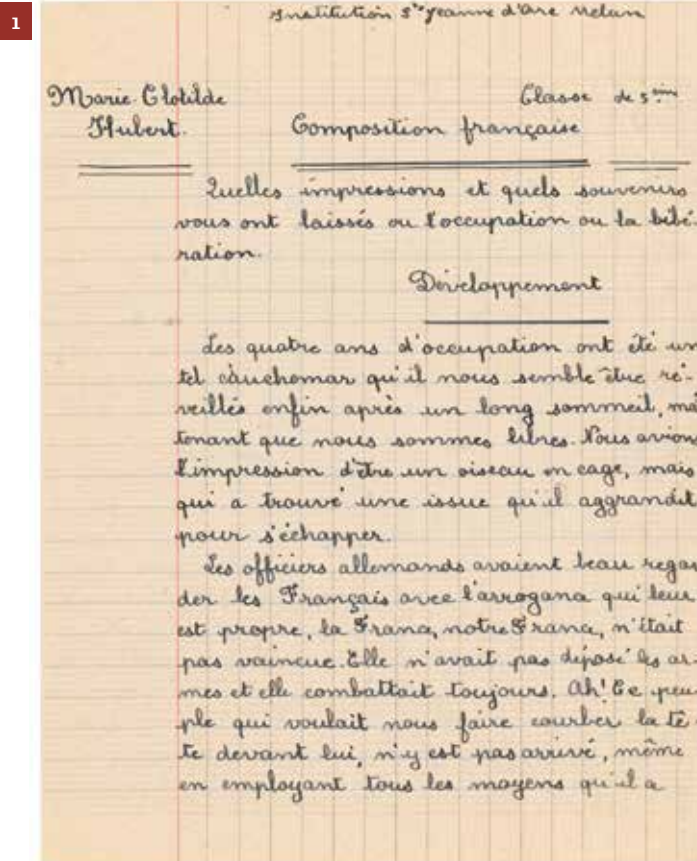 1
Institution Ste Jeanne d'Arc Melun
Marie Clotilde Classe de 5ème
Hubert. Composition française
Quelles impressions et quels souvenirs
vous ont laissés ou l'occupation ou la libé-
ration.
Développement
Les quatre ans d'occupation ont été un
tel cauchemar qu'il nous semble être ré-
veillés enfin après un long sommeil, mai
tenant que nous sommes libres. Nous avions
l'impression d'être un oiseau en cage, mais
qui a trouvé une issue qu'il aggrandit
pour s'échapper.
Les officiers allemands avaient beau regar
der les Français avec l'arrogance qui leur
est propre, la France, notre France, n'était
pas vaincue. Elle n'avait pas déposé les ar-
mes et elle combattait toujours. Ah! Ce peu
ple qui voulait nous faire courber la tê-
te devant lui, n'y est pas arrivé, même
en employant tous les moyens qu'il a